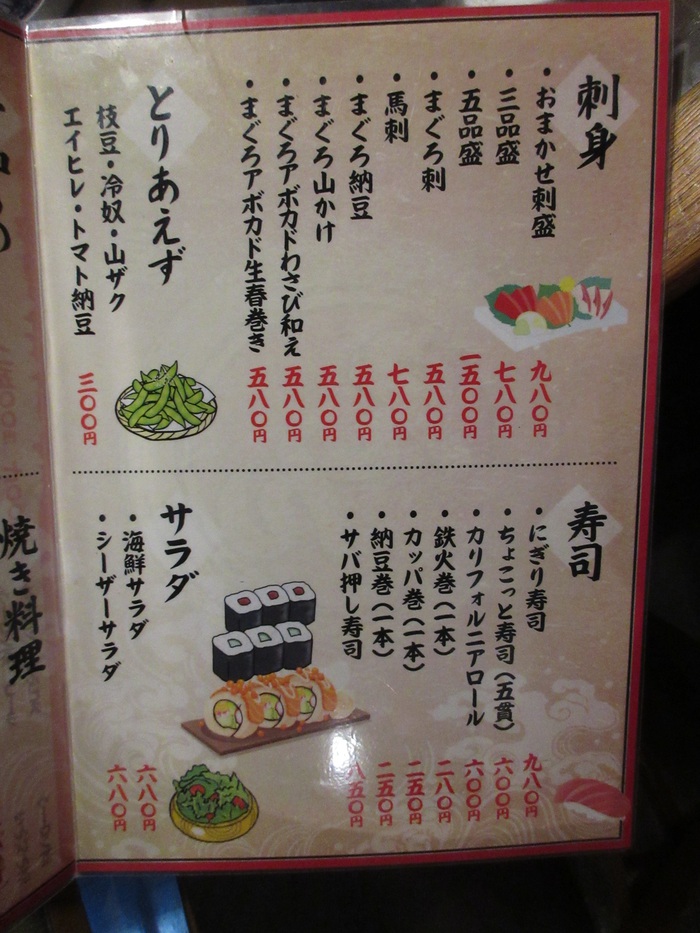 刺身
・おまかせ刺盛 九八〇円
・三品盛 七八〇円
・五品盛 一五〇〇円
・まぐろ刺 五八〇円
・馬刺 七八〇円
・まぐろ納豆 五八〇円
・まぐろ山かけ 五八〇円
・まぐろアボカドわさび和え 五八〇円
・まぐろアボカド生春巻き 五八〇円
とりあえず
枝豆・冷奴・山ザク
エイヒレ・トマト納豆 三〇〇円
寿司
・にぎり寿司 九八〇円
・ちょこっと寿司(五貫) 六〇〇円
・カリフォルニアロール 六〇〇円
・鉄火巻(一本) 二八〇円
・カッパ巻(一本) 二五〇円
・納豆巻(一本) 二五〇円
・サバ押し寿司 八五〇円
サラダ
・海鮮サラダ 六八〇円
・シーザーサラダ 六八〇円
焼き料理